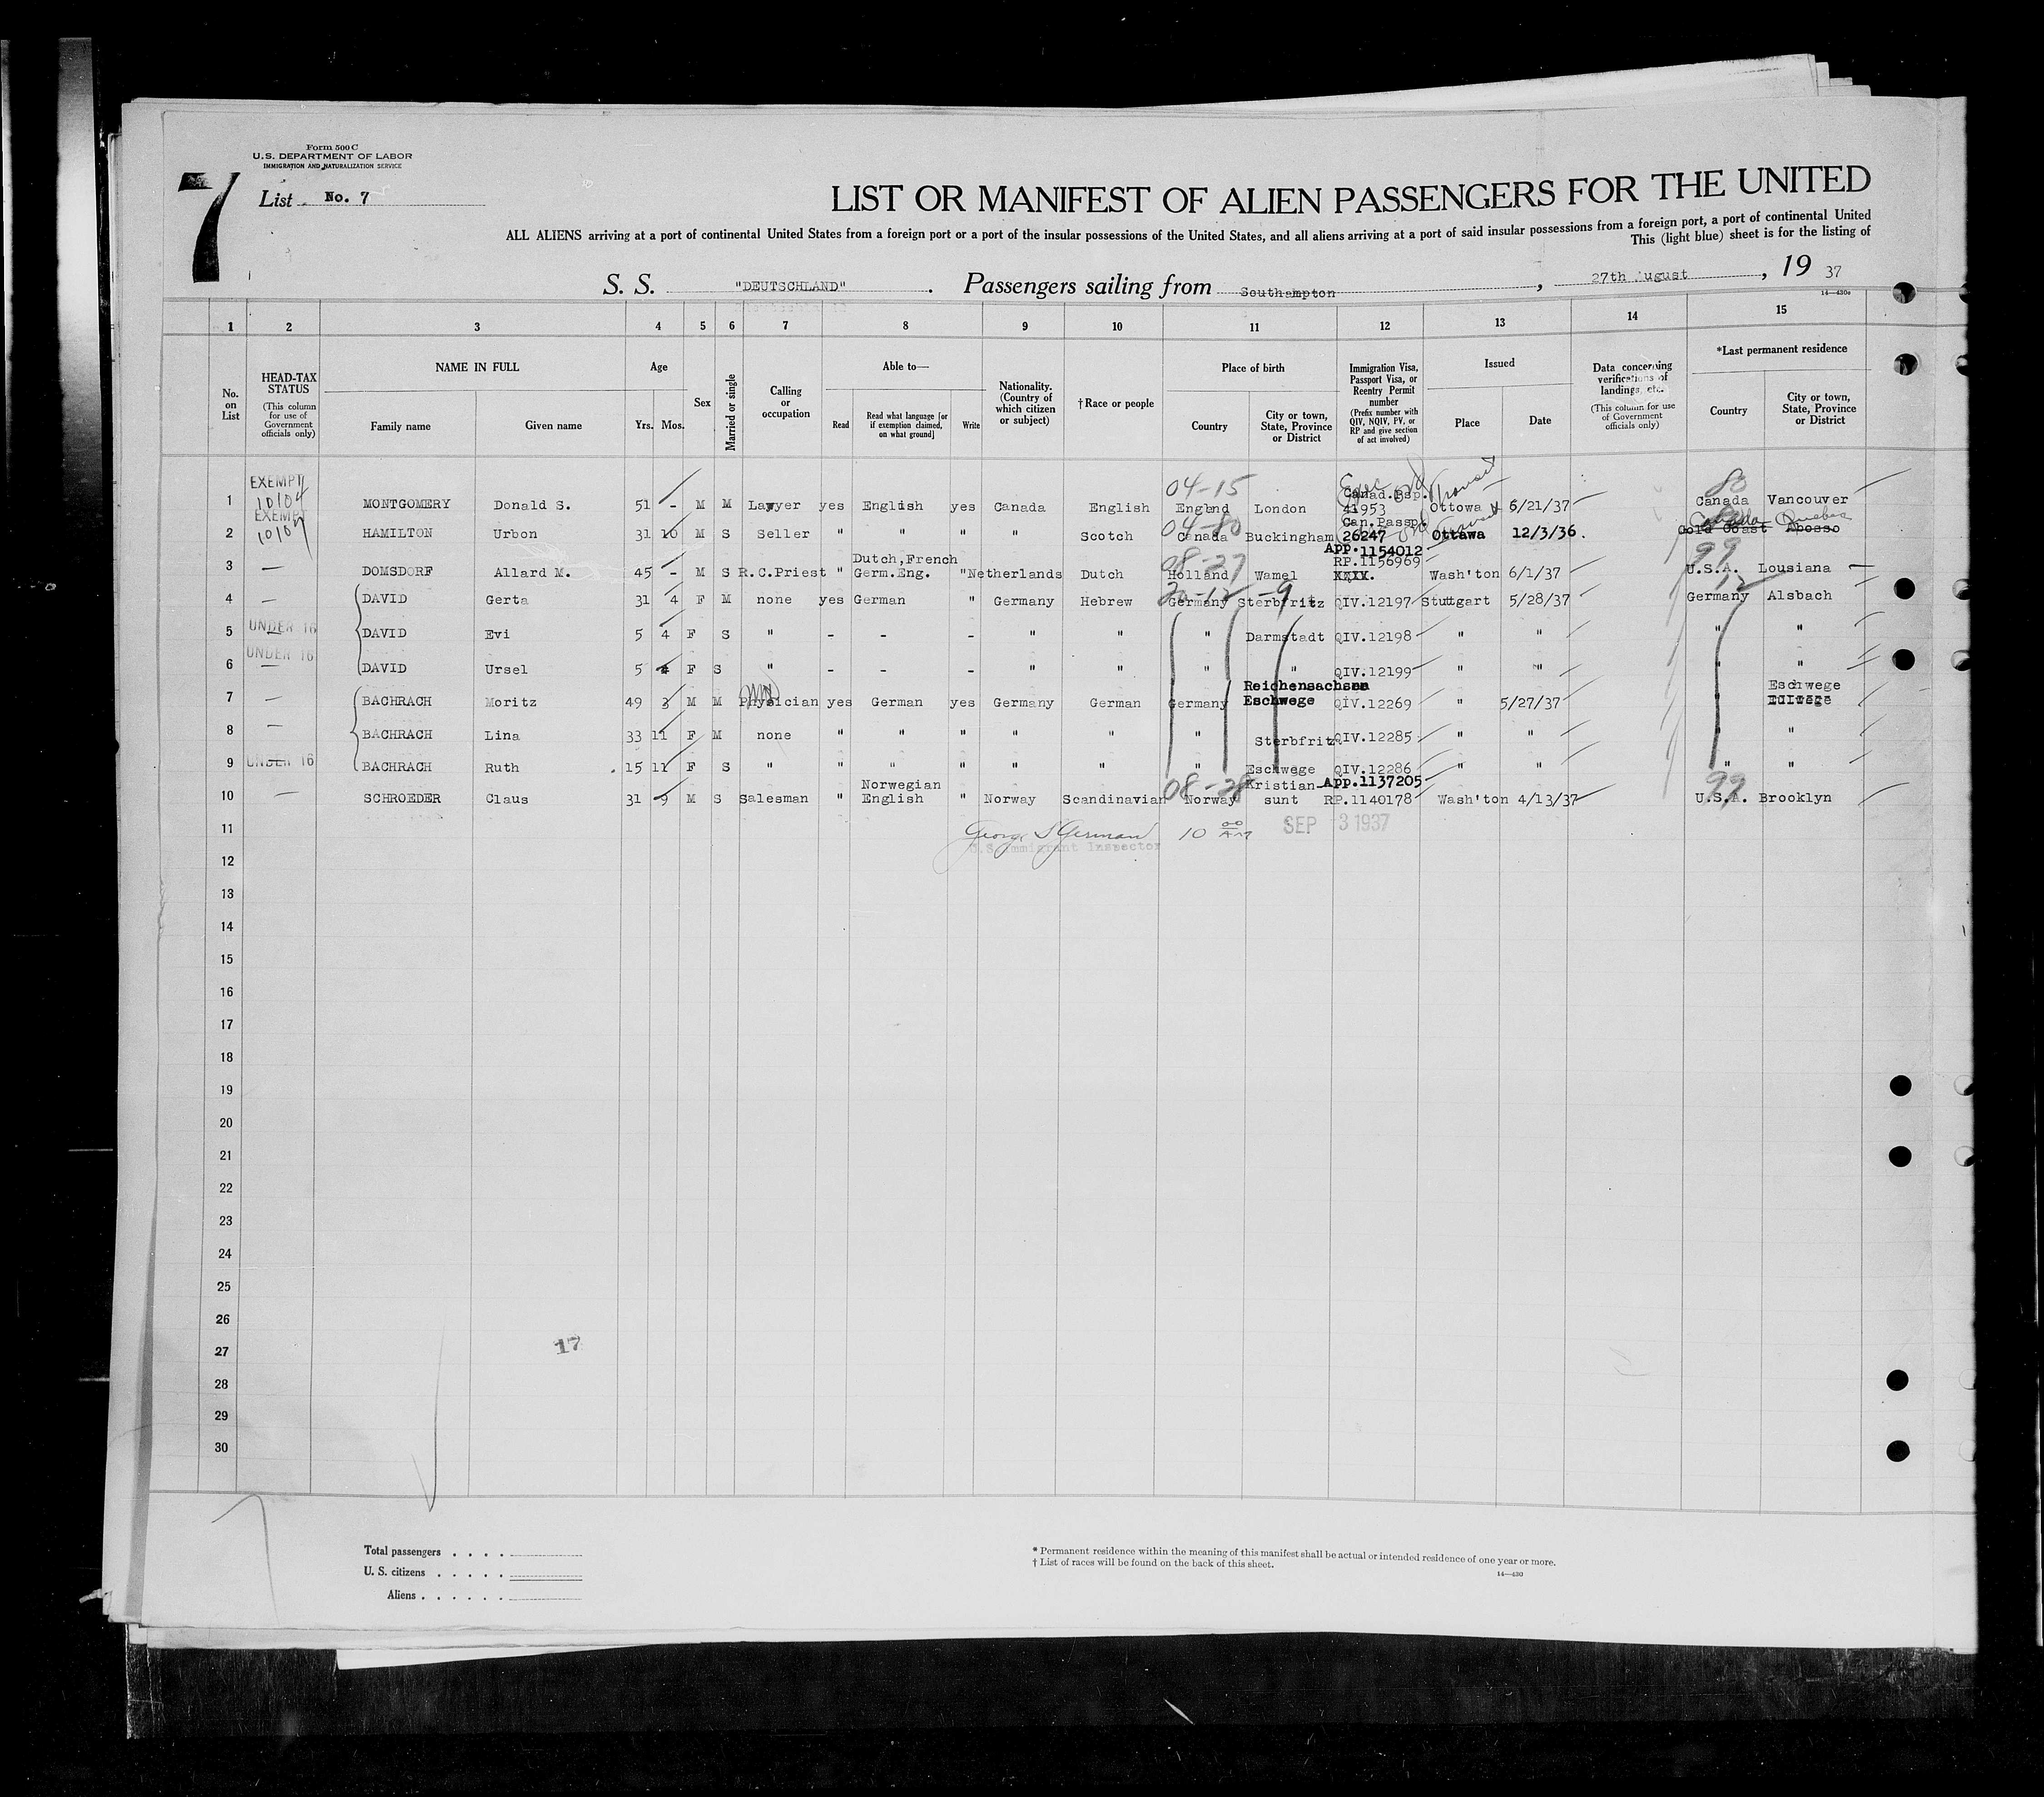 Form 500 C
U.S. DEPARTMENT OF LABOR
IMMIGRATION AND NATURALIZATION SERVICE
7
List No. 7
LIST OR MANIFEST OF ALIEN PASSENGERS FOR THE UNITED
ALL ALIENS arriving at a port of continental United States from a foreign port or a port of the insular possessions of the United States, and all aliens arriving at a port of said insular possessions from a foreign port, a port of continental United
This (light blue) sheet is for the listing of
S. S. "DEUTSCHLAND" . Passengers sailing from Southampton , 27th August , 19 37
14—430a
1 2 3 4 5 6 7 8 9 10 11 12 13 14 15
No. on List
HEAD-TAX STATUS (This column for use of Government officials only)
NAME IN FULL Family name Given name
Age Yrs. Mos.
Sex
Married or single
Calling or occupation
Able to— Read Read what language [or if exemption claimed, on what ground] Write
Nationality. (Country of which citizen or subject)
†Race or people
Place of birth Country City or town, State, Province or District
Immigration Visa, Passport Visa, or Reentry Permit number (Prefix number with QIV, NQIV, PV, or RP and give section of act involved)
Issued Place Date
Data concerning verifications of landings, etc. (This column for use of Government officials only)
*Last permanent residence Country City or town, State, Province or District
EXEMPT 04-15 Canad.Psp. 80
1 10104 MONTGOMERY Donald S. 51 - M M Lawyer yes English yes Canada English England London 41953 Ottowa 6/21/37 Canada Vancouver
EXEMPT 04-80 Can.Passp. Transit Canada Quebec
2 10104 HAMILTON Urbon 31 10 M S Seller " " " " Scotch Canada Buckingham 26247 Ottawa 12/3/36. Gold Coast Abosso
Dutch,French 08-27 App.1154012 RP.1156969 99
3 — DOMSDORF Allard M. 45 - M S R.C.Priest " Germ.Eng. " Netherlands Dutch Holland Wamel XXXX. Wash'ton 6/1/37 U.S.A. Lousiana
20-12 -9 12
4 — DAVID Gerta 31 4 F M none yes German " Germany Hebrew Germany Sterbfritz QIV.12197 Stuttgart 5/28/37 Germany Alsbach
5 UNDER 16 DAVID Evi 5 4 F S " - - - " " " Darmstadt QIV.12198 " " " "
6 UNDER 16 DAVID Ursel 5 4 F S " - - - " " " " QIV.12199 " " " "
Reichensachsen Eschwege
7 — BACHRACH Moritz 49 3 M M Physician yes German yes Germany German Germany Eschwege QIV.12269 " 5/27/37
8 — BACHRACH Lina 33 11 F M none " " " " " " Sterbfritz QIV.12285 " " "
9 UNDER 16 BACHRACH Ruth 15 11 F S " " " " " " " Eschwege QIV.12286 " " " "
Norwegian 08-28 Kristian- App.1137205 99
10 — SCHROEDER Claus 31 9 M S Salesman " English " Norway Scandinavian Norway sunt RP.1140178 Wash'ton 4/13/37 U.S.A. Brooklyn
11 George S German 10 00 AM SEP 3 1937
U.S. Immigrant Inspector
12
13
14
15
16
17
18
19
20
21
22
23
24
25
26
27 17
28
29
30
Total passengers . . . .
U. S. citizens . . . . .
Aliens . . . . . .
* Permanent residence within the meaning of this manifest shall be actual or intended residence of one year or more.
† List of races will be found on the back of this sheet.
14—430